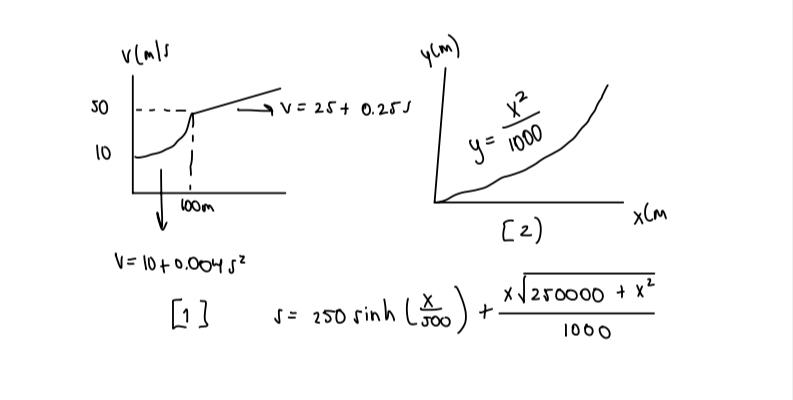 v(m/s
50
10
v = 25 + 0.25s
100m
v = 10 + 0.004 s²
[1]
y(m)
y = x²/1000
x(m
[2)
s = 250 sinh (x/500) + x√250000 + x²/1000